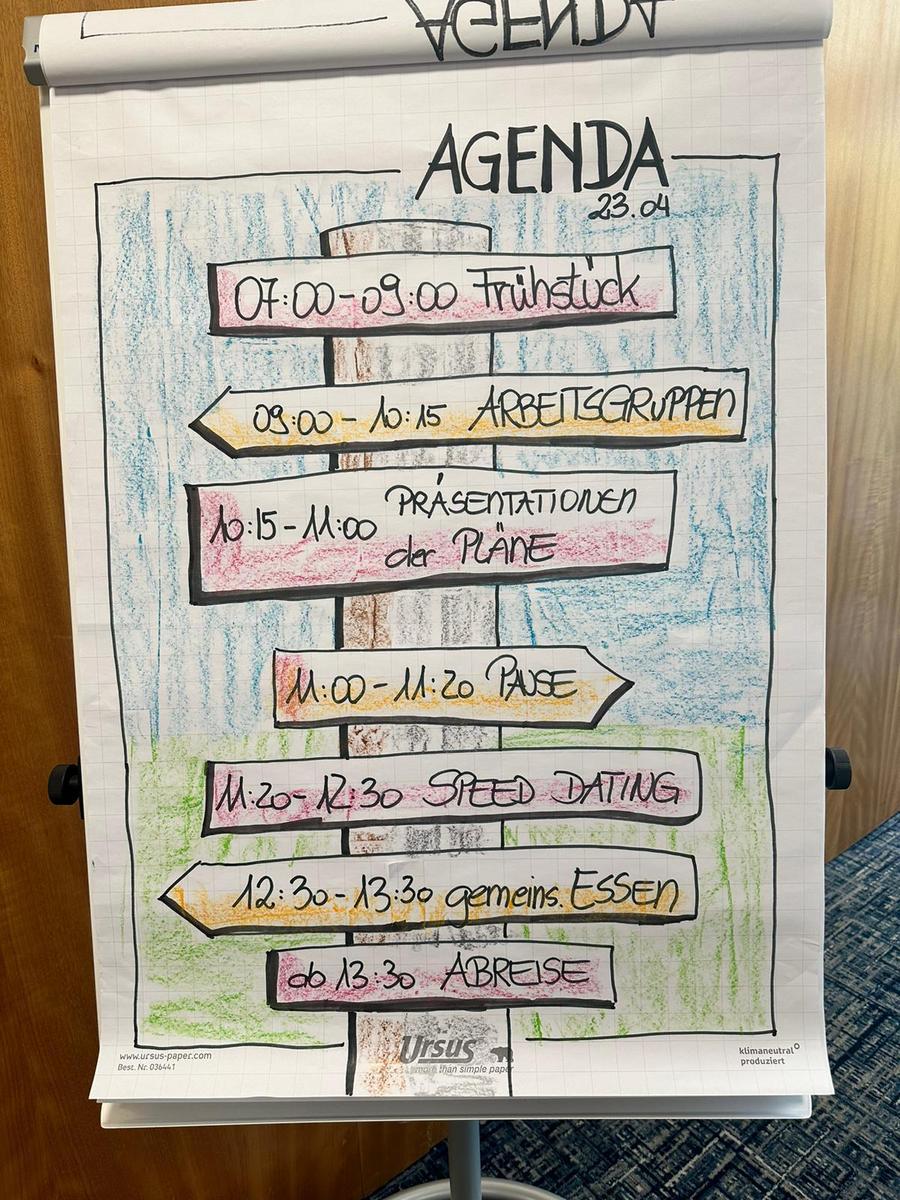 AGENDA
AGENDA
23.04
07:00-09:00 Frühstück
09:00 - 10:15 ARBEITSGRUPPEN
10:15-11:00 PRÄSENTATIONEN
der PLÄNE
11:00-11:20 PAUSE
11:20-12:30 SPEED DATING
12:30-13:30 gemeins. ESSEN
ab 13:30 ABREISE
www.ursus-paper.com
Best. Nr. 036441
Ursus
more than simple paper
klimaneutral
produziert